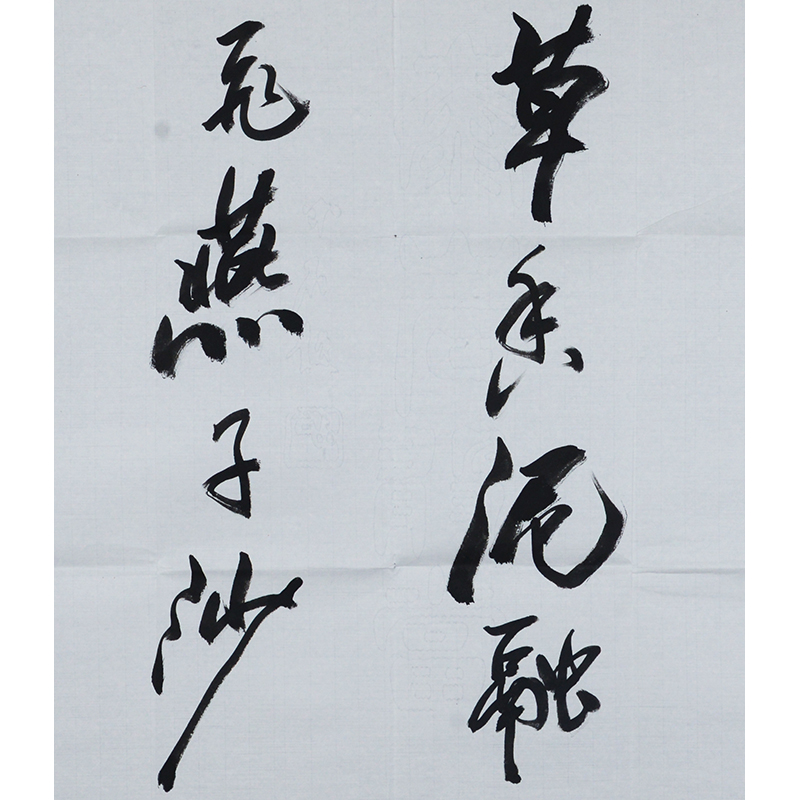 草香泥融
飛燕子沙